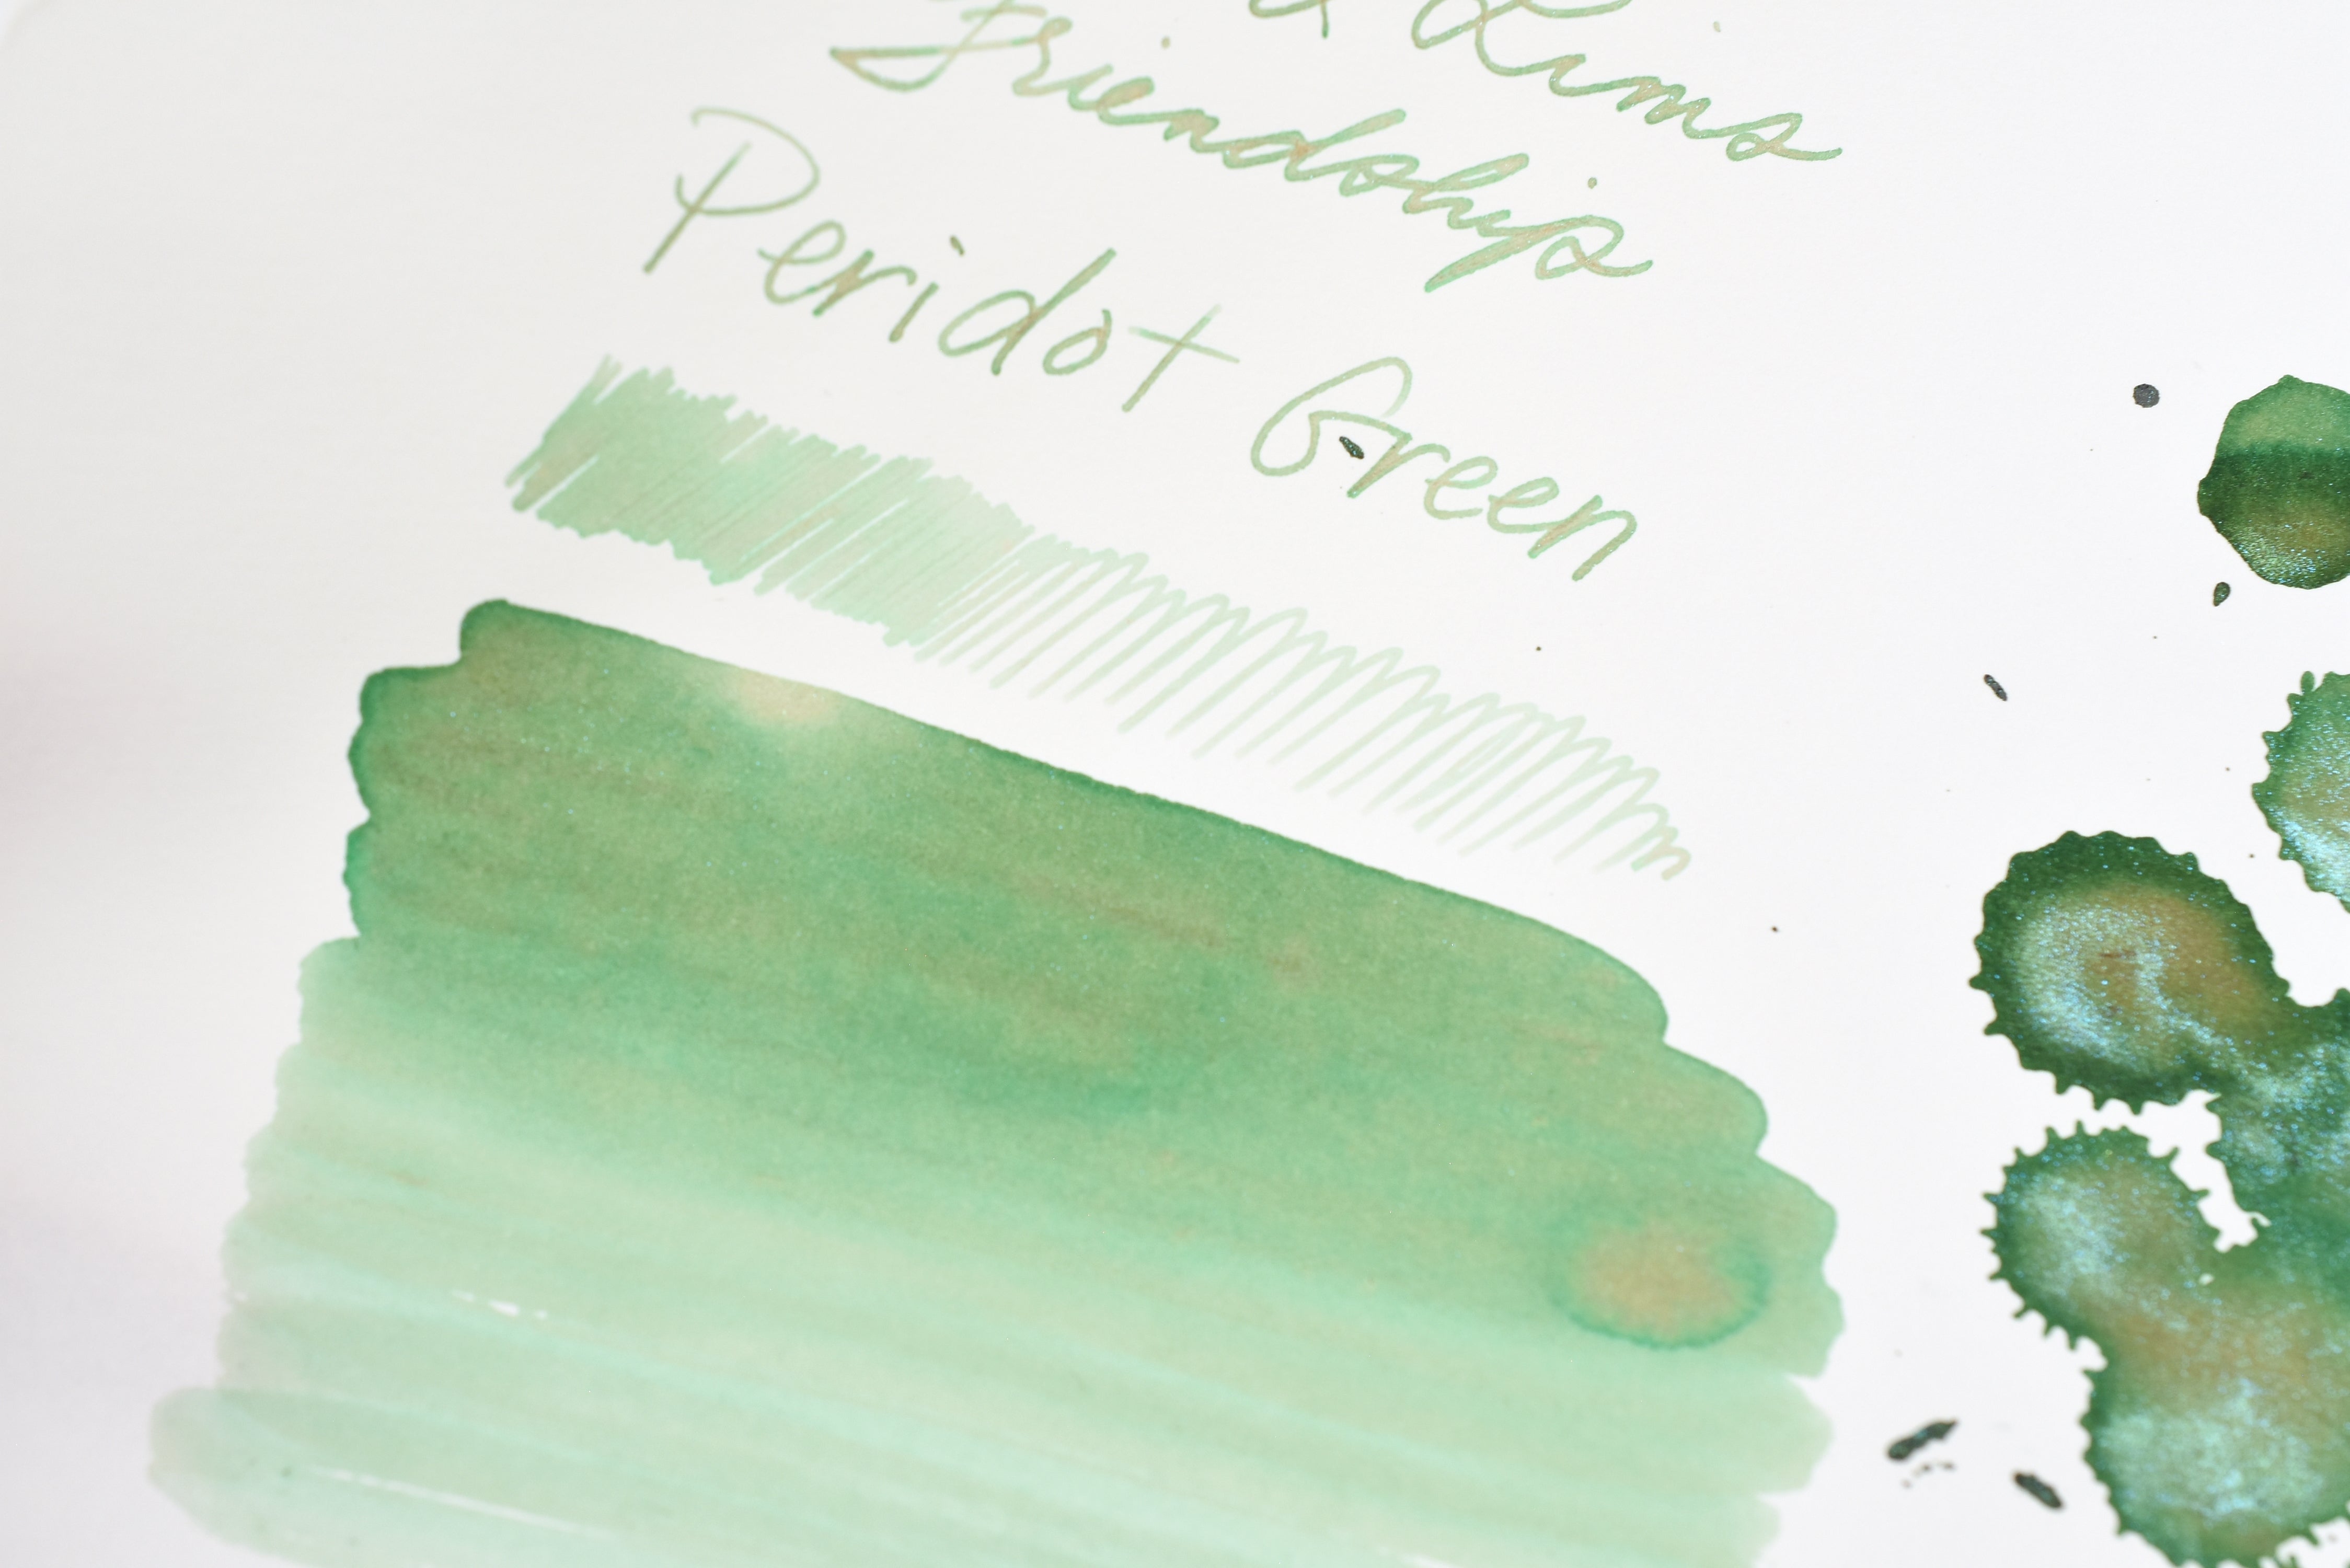 Lims
Friendship
Peridot Green